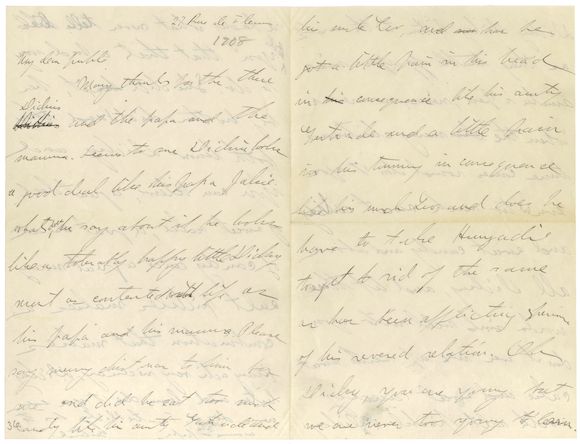 27 Rue de Fleurus
1908
My dear
Many thanks for the three
Dickies
and the papa and the
mamma. Seems to me Dickie looks
a good deal like his papa
what does he say about it he looks
like a totally happy little Dicky
most as contented with life as
his papa and his mamma. Please
say merry christmas to him for
me and did he eat too much
candy like his aunty Gertrude and
his uncle Leo, and has he
got a little pain in his head
in consequence like his aunty
Gertrude and a little pain
in his tummy in consequence
like his uncle Leo and does he
have to take Hunyadi
to get rid of the same
as has been afflicting
of his revered relation. Oh
Dicky you are young but
we are never too young to learn